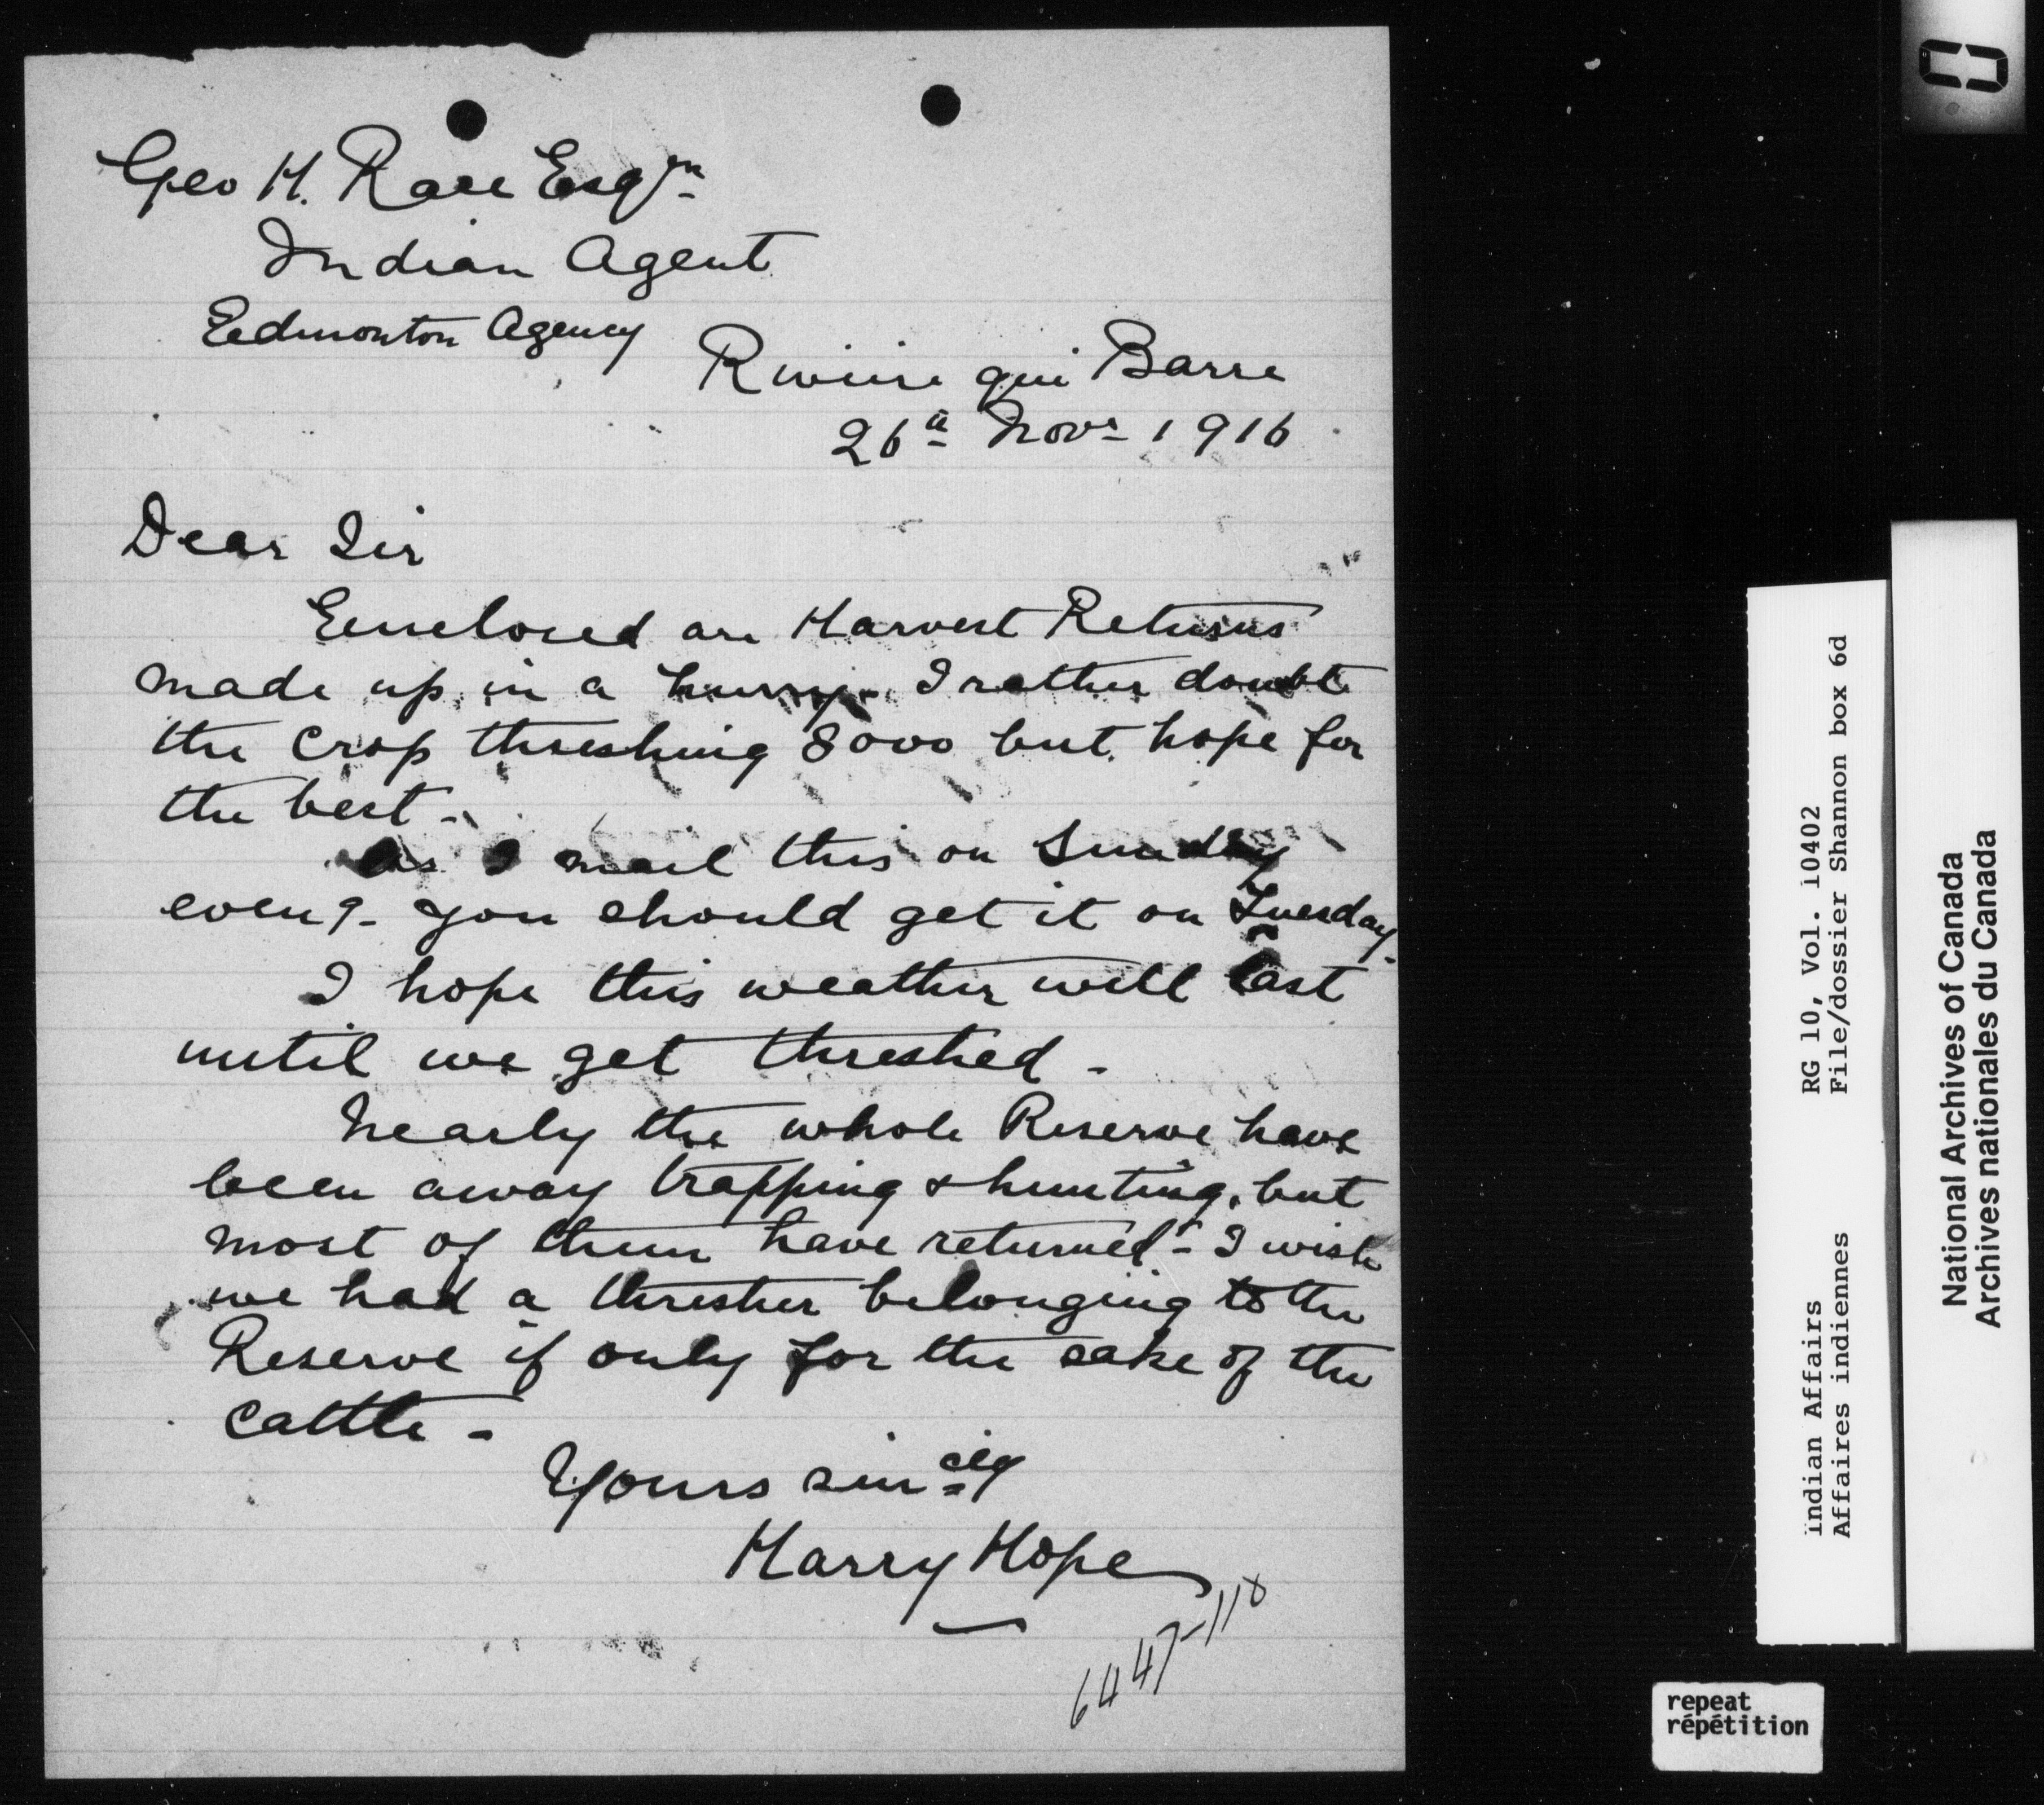 Geo H. Race Esqre
Indian Agent
Edmonton Agency
Riviere qui Barre
26th Novr 1916
Dear Sir
Enclosed are Harvest Returns
made up in a hurry - I rather doubt
the crop threshing 8000 but hope for
the best -
As I mail this on Sunday
eveng - you should get it on Tuesday -
I hope this weather will last
until we get threshed -
Nearly the whole Reserve have
been away trapping & hunting, but
most of them have returned - I wish
we had a thresher belonging to the
Reserve if only for the sake of the
cattle -
Yours sincly
Harry Hope
6447-118
0
Indian Affairs RG 10, Vol. 10402
Affaires indiennes File/dossier Shannon box 6d
National Archives of Canada
Archives nationales du Canada
repeat
répétition